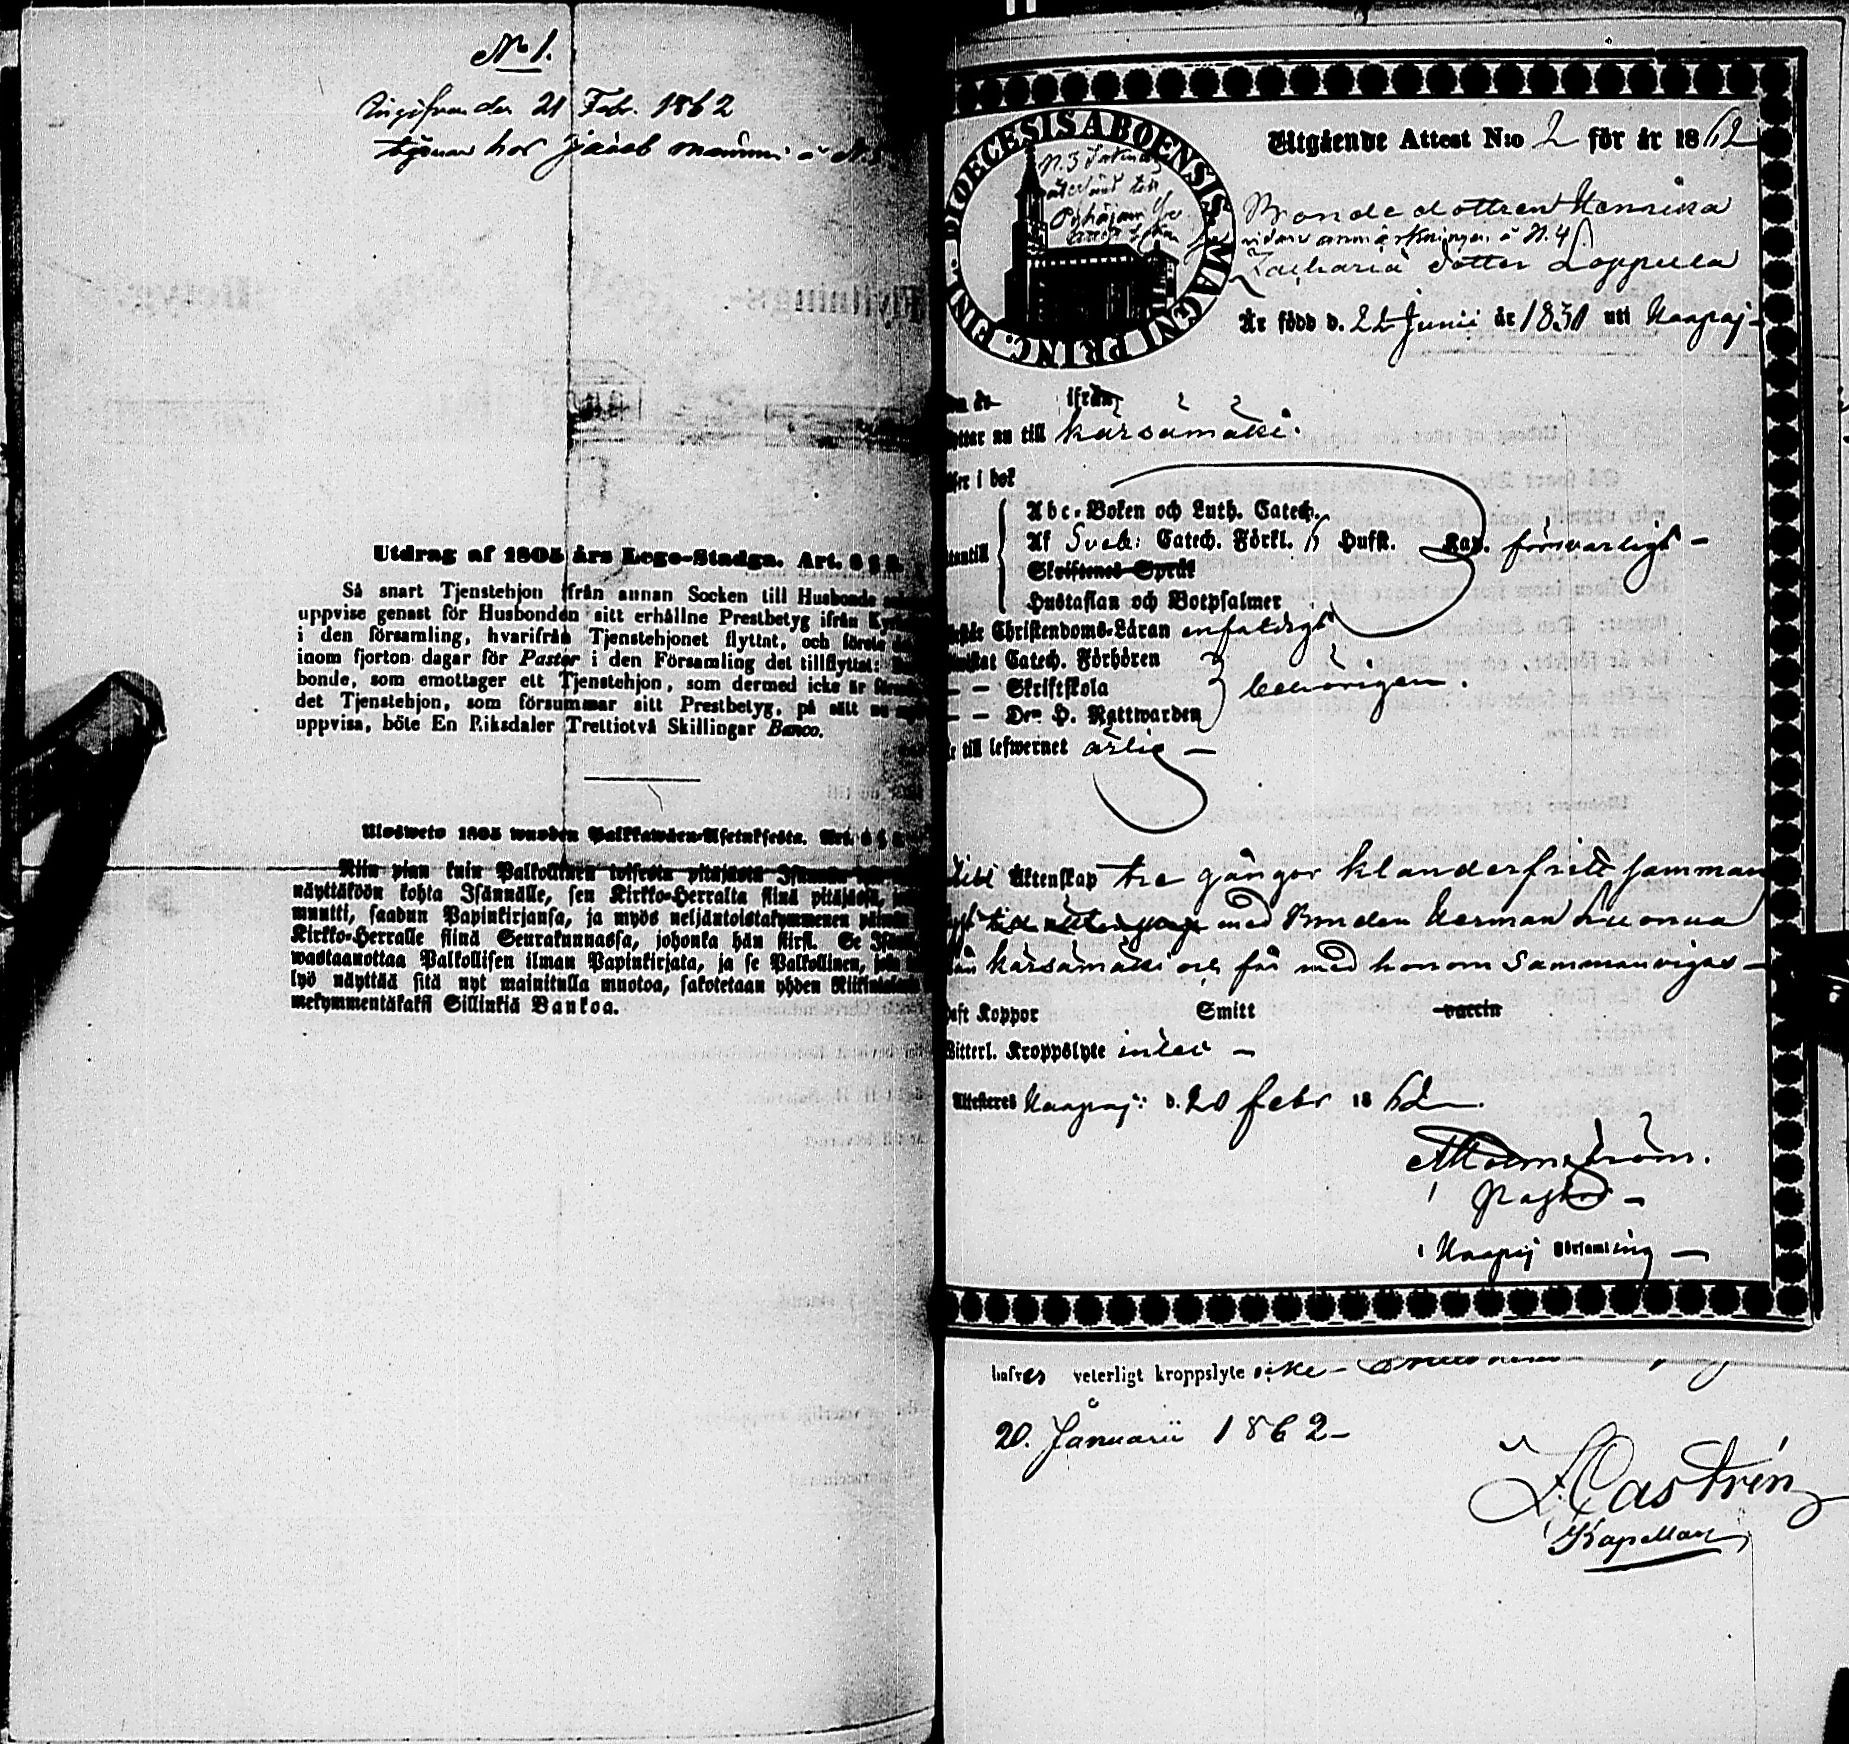 No 1.
den 21 Febr. 1862
hos
Utdrag af 1805 års Lego-Stadga. Art. 6 §
Så snart Tjenstehjon ifrån annan Socken till Husbonde
uppvise genast för Husbonden sitt erhållne Prestbetyg ifrån
i den församling, hvarifrån Tjenstehjonet flyttat, och
inom fjorton dagar för Pastor i den Församling det tillflyttat:
bonde, som emottager ett Tjenstehjon, som dermed icke är
det Tjenstehjon, som försummar sitt Prestbetyg, på sätt
uppvisa, böte En Riksdaler Trettiotvå Skillingar Banco.
Ulosweto 1805 wuoden Palkkawäen-Asetuksesta. Art. 6 §
Niin pian kuin Palkollinen toisesta pitäjästä
näyttäköön kohta Isännälle, sen Kirkko-Herralta siinä pitäjässä,
muutti, saadun Papinkirjansa, ja myös neljäntoistakymmenen
Kirkko-Herralle siinä Seurakunnassa, johonka hän siirsi. Se
wastaanottaa Palkollisen ilman Papinkirjata, ja se Palkollinen,
lyö näyttää sitä nyt mainitulla muotoa, sakotetaan yhden
mekymmentäkaksi Sillinkiä Bankoa.
DIOECESIS ABOENSIS MAGNI PRINC. FINL.
Utgående Attest N:o 2 för år 1862
Bondedottren Henrika
anmärkningen å N. 4
Zacharia dotter Loppula
Är född d. 22 Junii år 1831 uti Haapaj
ifrån
nu till Kärsämäki.
i bok
Abc-Boken och Luth. Catech.
Af Sveb: Catech. Förkl. Hufst. Kap. försvarligt -
Skriftenes Språk
Hustaflan och Botpsalmer
Christendoms-Läran enfaldigt
Catech. Förhören
- - Skriftskola behörigen.
- - Den H. Nattwarden
till lefwernet ärlig -
Äktenskap tre gånger klanderfritt samman
med Bonden Herman Luonua
Kärsämäki och får med honom sammanvigas -
haft Koppor Smitt vaccin
Witterl. Kroppslyte intet -
Attesteras Haapaj: d. 20 Febr 1862.
Pastor -
i Haapaj Församling -
hafves veterligt kroppslyte icke -
20. Januarii 1862 -
Castrén
Kapellan